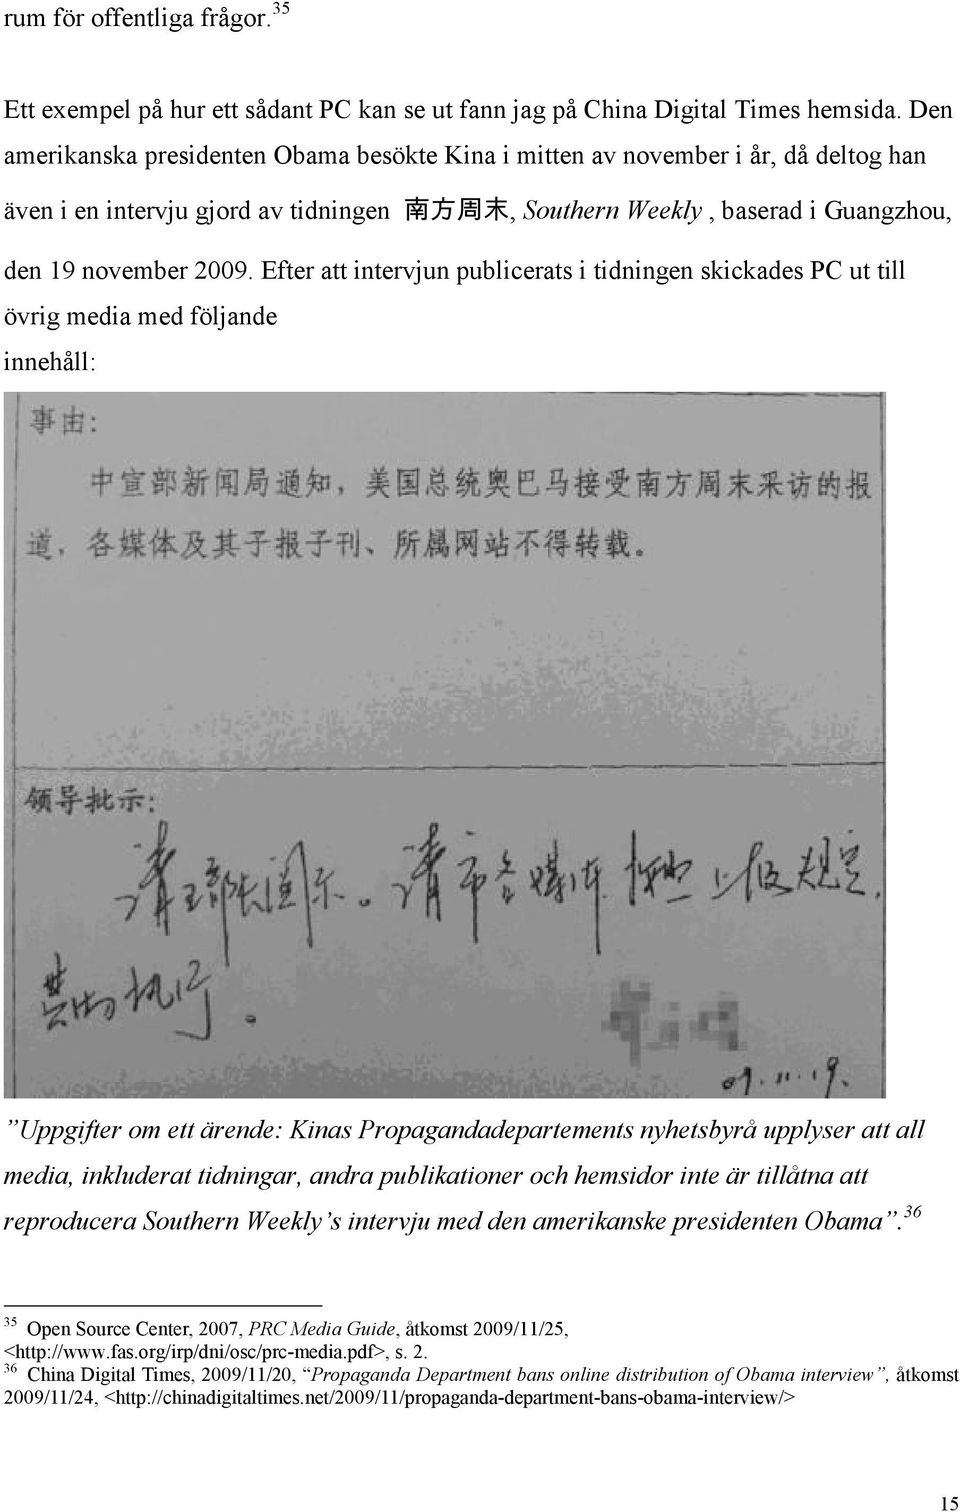 rum för offentliga frågor. 35
Ett exempel på hur ett sådant PC kan se ut fann jag på China Digital Times hemsida. Den
amerikanska presidenten Obama besökte Kina i mitten av november i år, då deltog han
även i en intervju gjord av tidningen 南方周末, Southern Weekly , baserad i Guangzhou,
den 19 november 2009. Efter att intervjun publicerats i tidningen skickades PC ut till
övrig media med följande
innehåll:
事由:
中宣部新闻局通知，美国总统奥巴马接受南方周末采访的报
道，各媒体及其子报子刊、所属网站不得转载。
领导批示:
请 部长阅示。请市各媒体按照上级规定,
贯彻执行。
09.11.19.
”Uppgifter om ett ärende: Kinas Propagandadepartements nyhetsbyrå upplyser att all
media, inkluderat tidningar, andra publikationer och hemsidor inte är tillåtna att
reproducera Southern Weekly’s intervju med den amerikanske presidenten Obama”. 36
35 Open Source Center, 2007, PRC Media Guide, åtkomst 2009/11/25,
<http://www.fas.org/irp/dni/osc/prc-media.pdf>, s. 2.
36 China Digital Times, 2009/11/20, “Propaganda Department bans online distribution of Obama interview”, åtkomst
2009/11/24, <http://chinadigitaltimes.net/2009/11/propaganda-department-bans-obama-interview/>
15